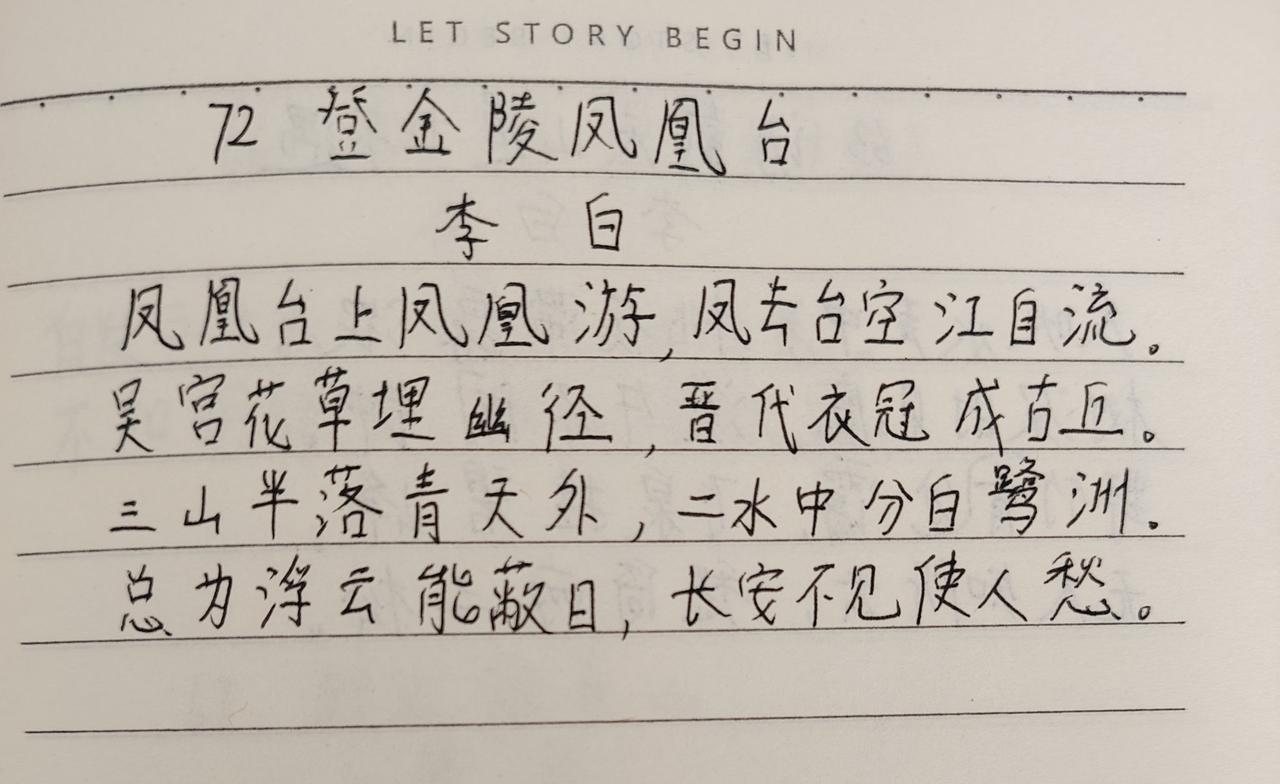 LET STORY BEGIN
72 登金陵凤凰台
李白
凤凰台上凤凰游,凤去台空江自流。
吴宫花草埋幽径,晋代衣冠成古丘。
三山半落青天外,二水中分白鹭洲。
总为浮云能蔽日,长安不见使人愁。